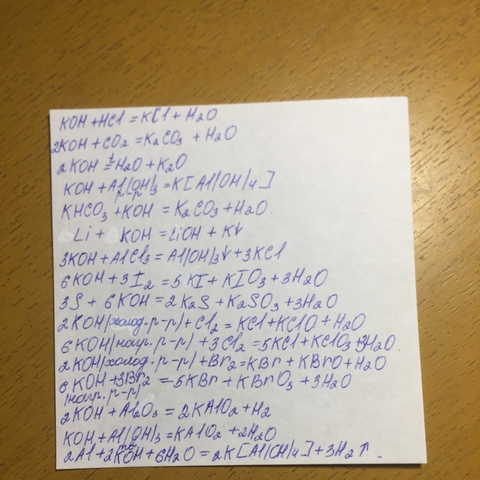 KOH + HCl = KCl + H2O
2KOH + CO2 = K2CO3 + H2O
2KOH t= H2O + K2O
KOH + Al(OH)3 р-р = K[Al(OH)4]
KHCO3 + KOH = K2CO3 + H2O.
Li + KOH = LiOH + K↓
3KOH + AlCl3 = Al(OH)3↓ + 3KCl
6KOH + 3I2 = 5KI + KIO3 + 3H2O
3S + 6KOH = 2K2S + K2SO3 + 3H2O
2KOH(холод. р-р) + Cl2 = KCl + KClO + H2O
6KOH(нагр. р-р) + 3Cl2 = 5KCl + KClO3 + 3H2O.
2KOH(холод. р-р) + Br2 = KBr + KBrO + H2O
6KOH + 3Br2 = 5KBr + KBrO3 + 3H2O
(нагр. р-р)
2KOH + Al2O3 = 2KAlO2 + H2
KOH + Al(OH)3 = KAlO2 + 2H2O
2Al + 2KOH + 6H2O = 2K[Al(OH)4] + 3H2↑.